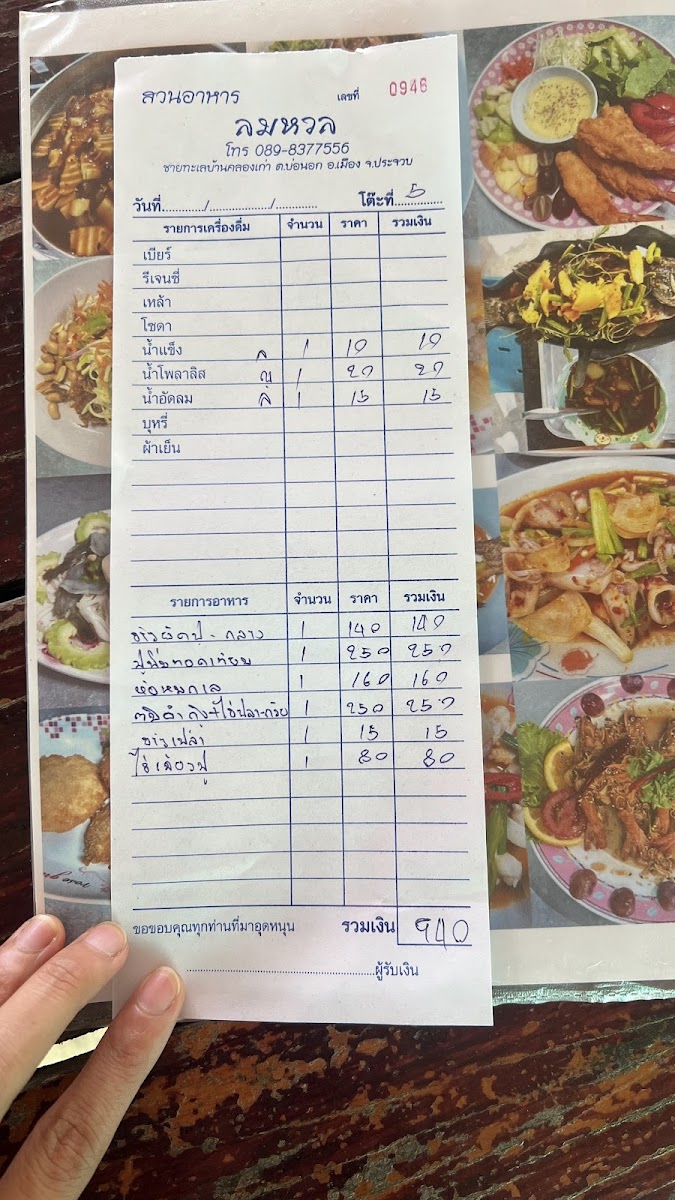 สวนอาหาร เลขที่ 0946
ลมหวล
โทร 089-8377556
ชายทะเลบ้านคลองเก่า ต.บ่อนอก อ.เมือง จ.ประจวบ
วันที่............/................../............ โต๊ะที่ 5
รายการเครื่องดื่ม จำนวน ราคา รวมเงิน
เบียร์
รีเจนซี่
เหล้า
โซดา
น้ำแข็ง 1 10 10
น้ำโพลาลิส ญ 1 20 20
น้ำอัดลม ล 1 15 15
บุหรี่
ผ้าเย็น
รายการอาหาร จำนวน ราคา รวมเงิน
ข้าวผัดปู - กลาง 1 140 140
ปูนิ่มทอดเทียม 1 250 250
ห่อหมกเล 1 160 160
1 250 250
ข้าวเปล่า 1 15 15
ไข่เจียวปู 1 80 80
ขอขอบคุณทุกท่านที่มาอุดหนุน รวมเงิน 940
ผู้รับเงิน